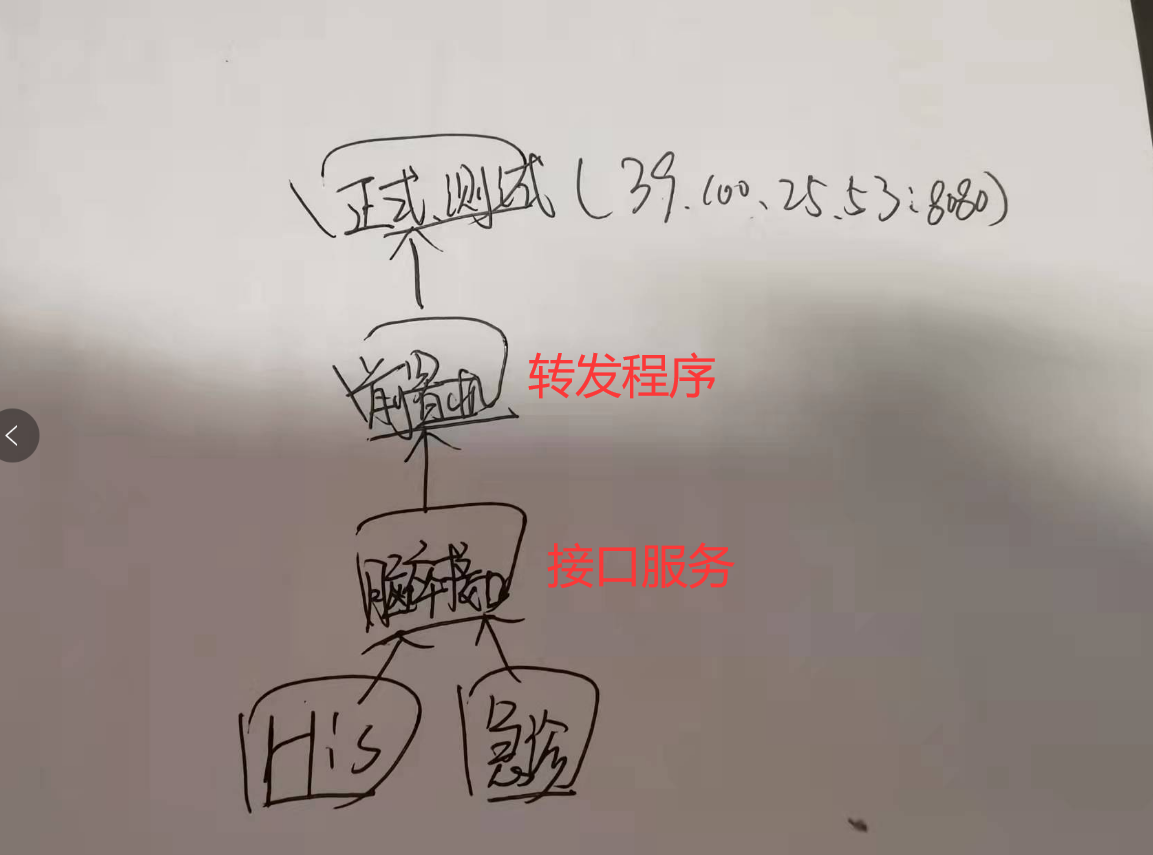 正式、测试(39.100.25.53:8080)
前置机 转发程序
脑卒接口 接口服务
His 急诊